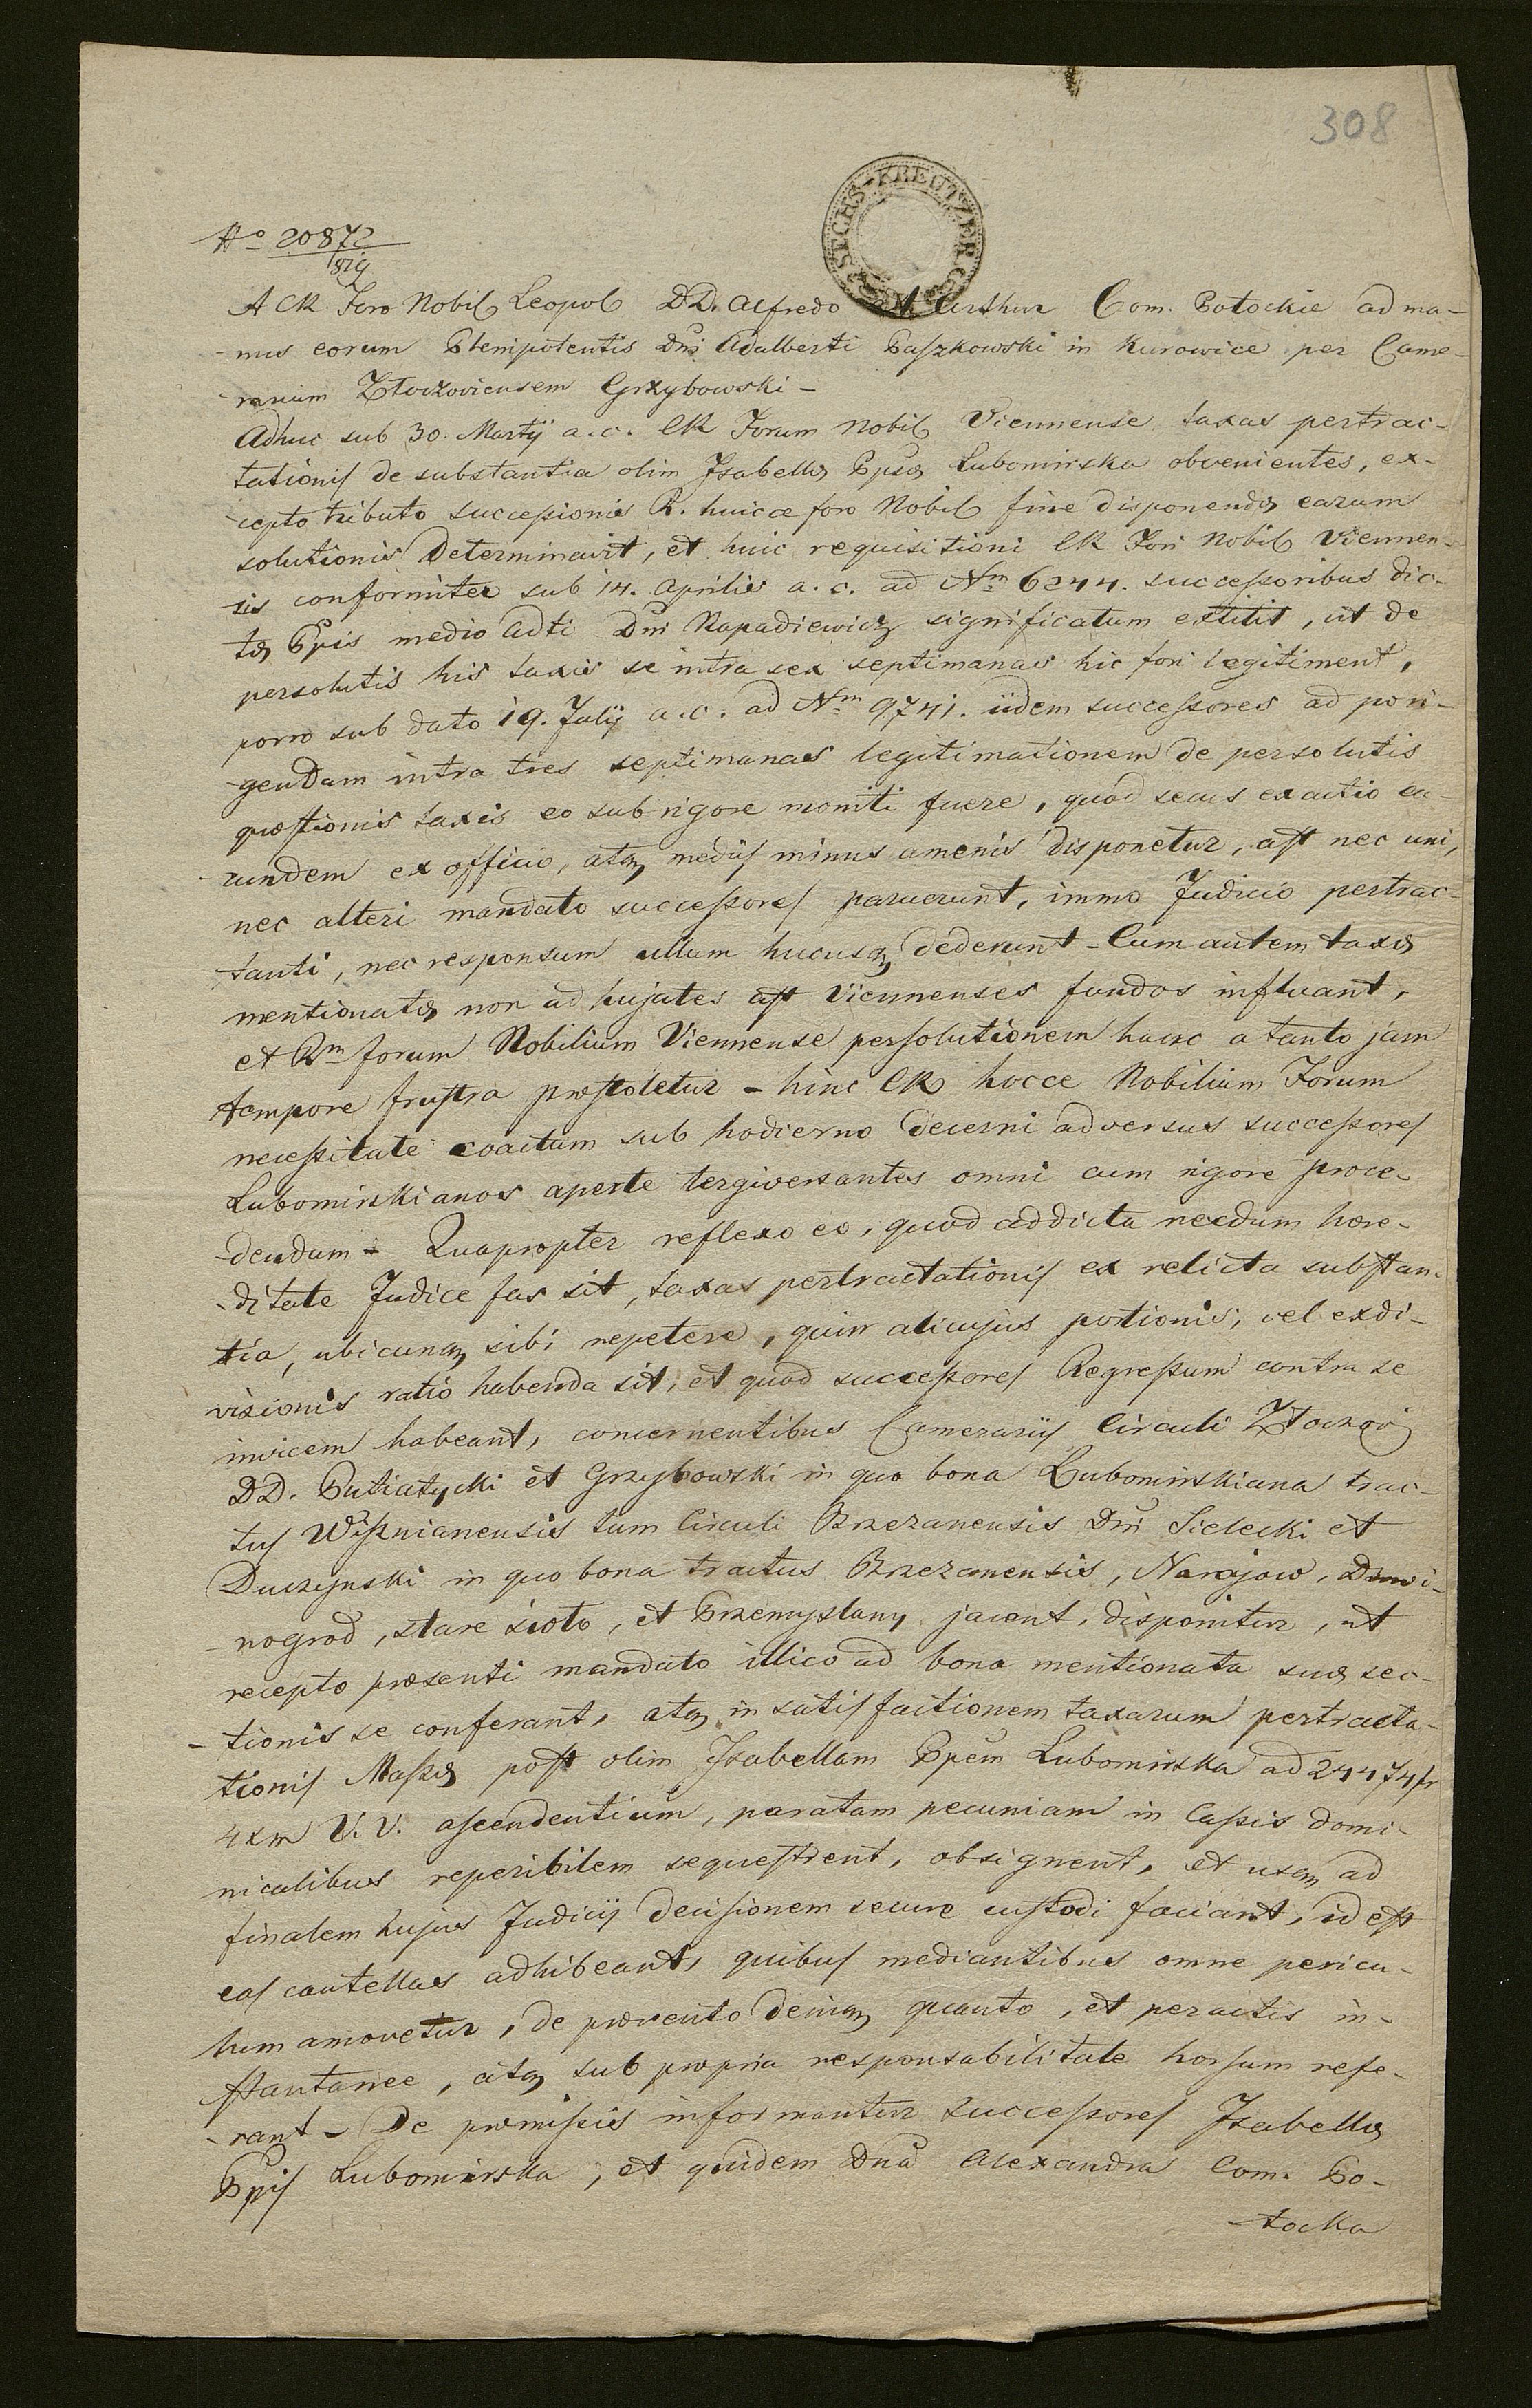 308
SECHS-KREUTZER C. M.
No 20872
819
A CR. Foro Nobil Leopol DD. Alfredo et Arthur Com. Potockie ad ma-
-nus eorum Plenipotentis Dni Adalberti Paszkowski in Kurowice per Came-
rarium Złoczoviensem Grzybowski -
Adhuc sub 30. Martij a. c. CR Forum Nobil Viennense taxas pertrac-
tationis de substantia olim Isabellæ Ppsæ Lubomirska obvenientes, ex-
cepto tributo successionis R. huicce foro Nobil fine disponendæ earum
solutionis Determinavit, et huic requisitioni CR Fori Nobil Viennen-
sis conformiter sub 14. Aprilis a. c. ad Nm 6244. successoribus dic-
tæ Ppis medio Adti Dni Napadiewicz significatum extitit, ut de
persolutis his taxis se intra sex septimanas hic fori legitiment,
porro sub dato 19. Julij a. c. ad Nm 9741. iidem successores ad porri-
gendam intra tres septimanas legitimationem de persolutis
quæstionis taxis eo sub rigore moniti fuere, quod secus exactio ea-
-rundem ex officio, atq mediis minus amenis disponetur, ast nec uni,
nec alteri mandato successores paruerunt, immo Judicio pertrac-
tanti, nec responsum ullum hucusq dederunt - Cum autem taxæ
mentionatæ non ad hujates ast Viennenses fundos influant,
et Rm forum Nobilium Viennense persolutionem hanc a tanto jam
tempore frustra præstoletur - hinc CR hocce Nobilium Forum
necessitate coactum sub hodierno decerni adversus successores
Lubomirskianos aperte tergiversantes omni cum rigore proce-
-dendum - Quapropter reflexo eo, quod addicta necdum hære-
-ditate Judice fas sit, taxas pertractationis ex relicta substan-
tia, ubicunq sibi repetere, quin alicujus portionis, vel exdi-
visionis ratio habenda sit, et quod successores Regressum contra se
invicem habeant, concernentibus Camerariis Circuli Złoczov
DD. Putiatycki et Grzybowski in quo bona Lubomirskiana trac-
tus Wisznianensis tum Circuli Brzezanensis Dni Sielecki et
Duczynski in quo bona tractus Brzezanensis, Narajow, Dunvi-
-nogrod, stare sioło, et Przemyslany jacent, disponitur, ut
recepto præsenti mandato illico ad bona mentionata suæ sec-
-tionis se conferant, atq in satisfactionem taxarum pertracta-
tionis Massæ post olim Isabellam Ppem Lubomirska ad 24474 fr
4 xm V. V. ascendentium, paratam pecuniam in Cassis domi-
nicalibus reperibilem sequestrent, obsignent, et usq ad
finalem hujus Judicij decisionem secure custodi faciant, id est
eas cautellas adhibeant, quibus mediantibus omne pericu-
lum amovetur, de provento deinq quanto, et peractis in-
stantanee, atq sub propria responsabilitate horsum refe-
-rant - De præmissis informantur successores Isabellæ
Ppis Lubomirska, et quidem Dna Alexandra Com. Po-
-tocka